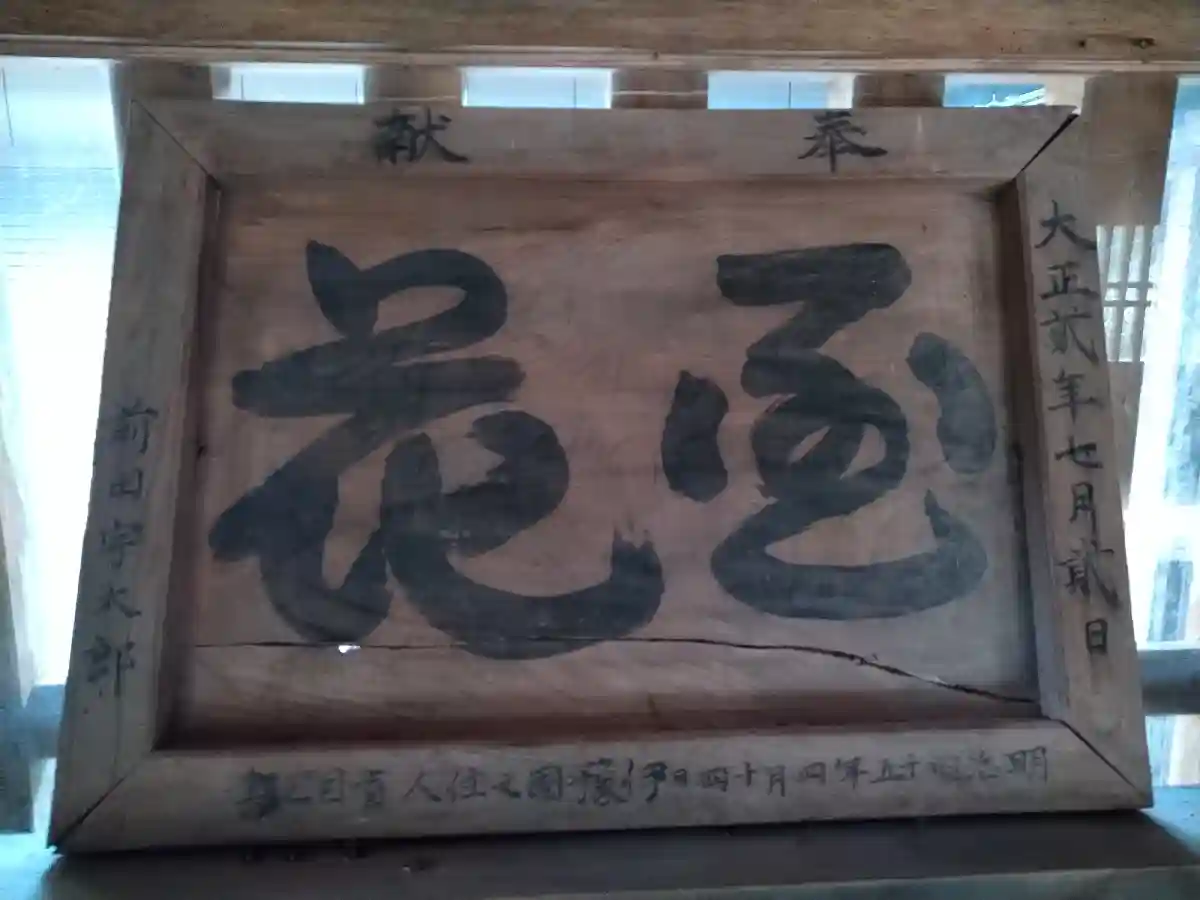 奉献
花
大正貳年七月貳日
明治四十五年四月十四日伊豫國之住人盲目之
前田宇太郎